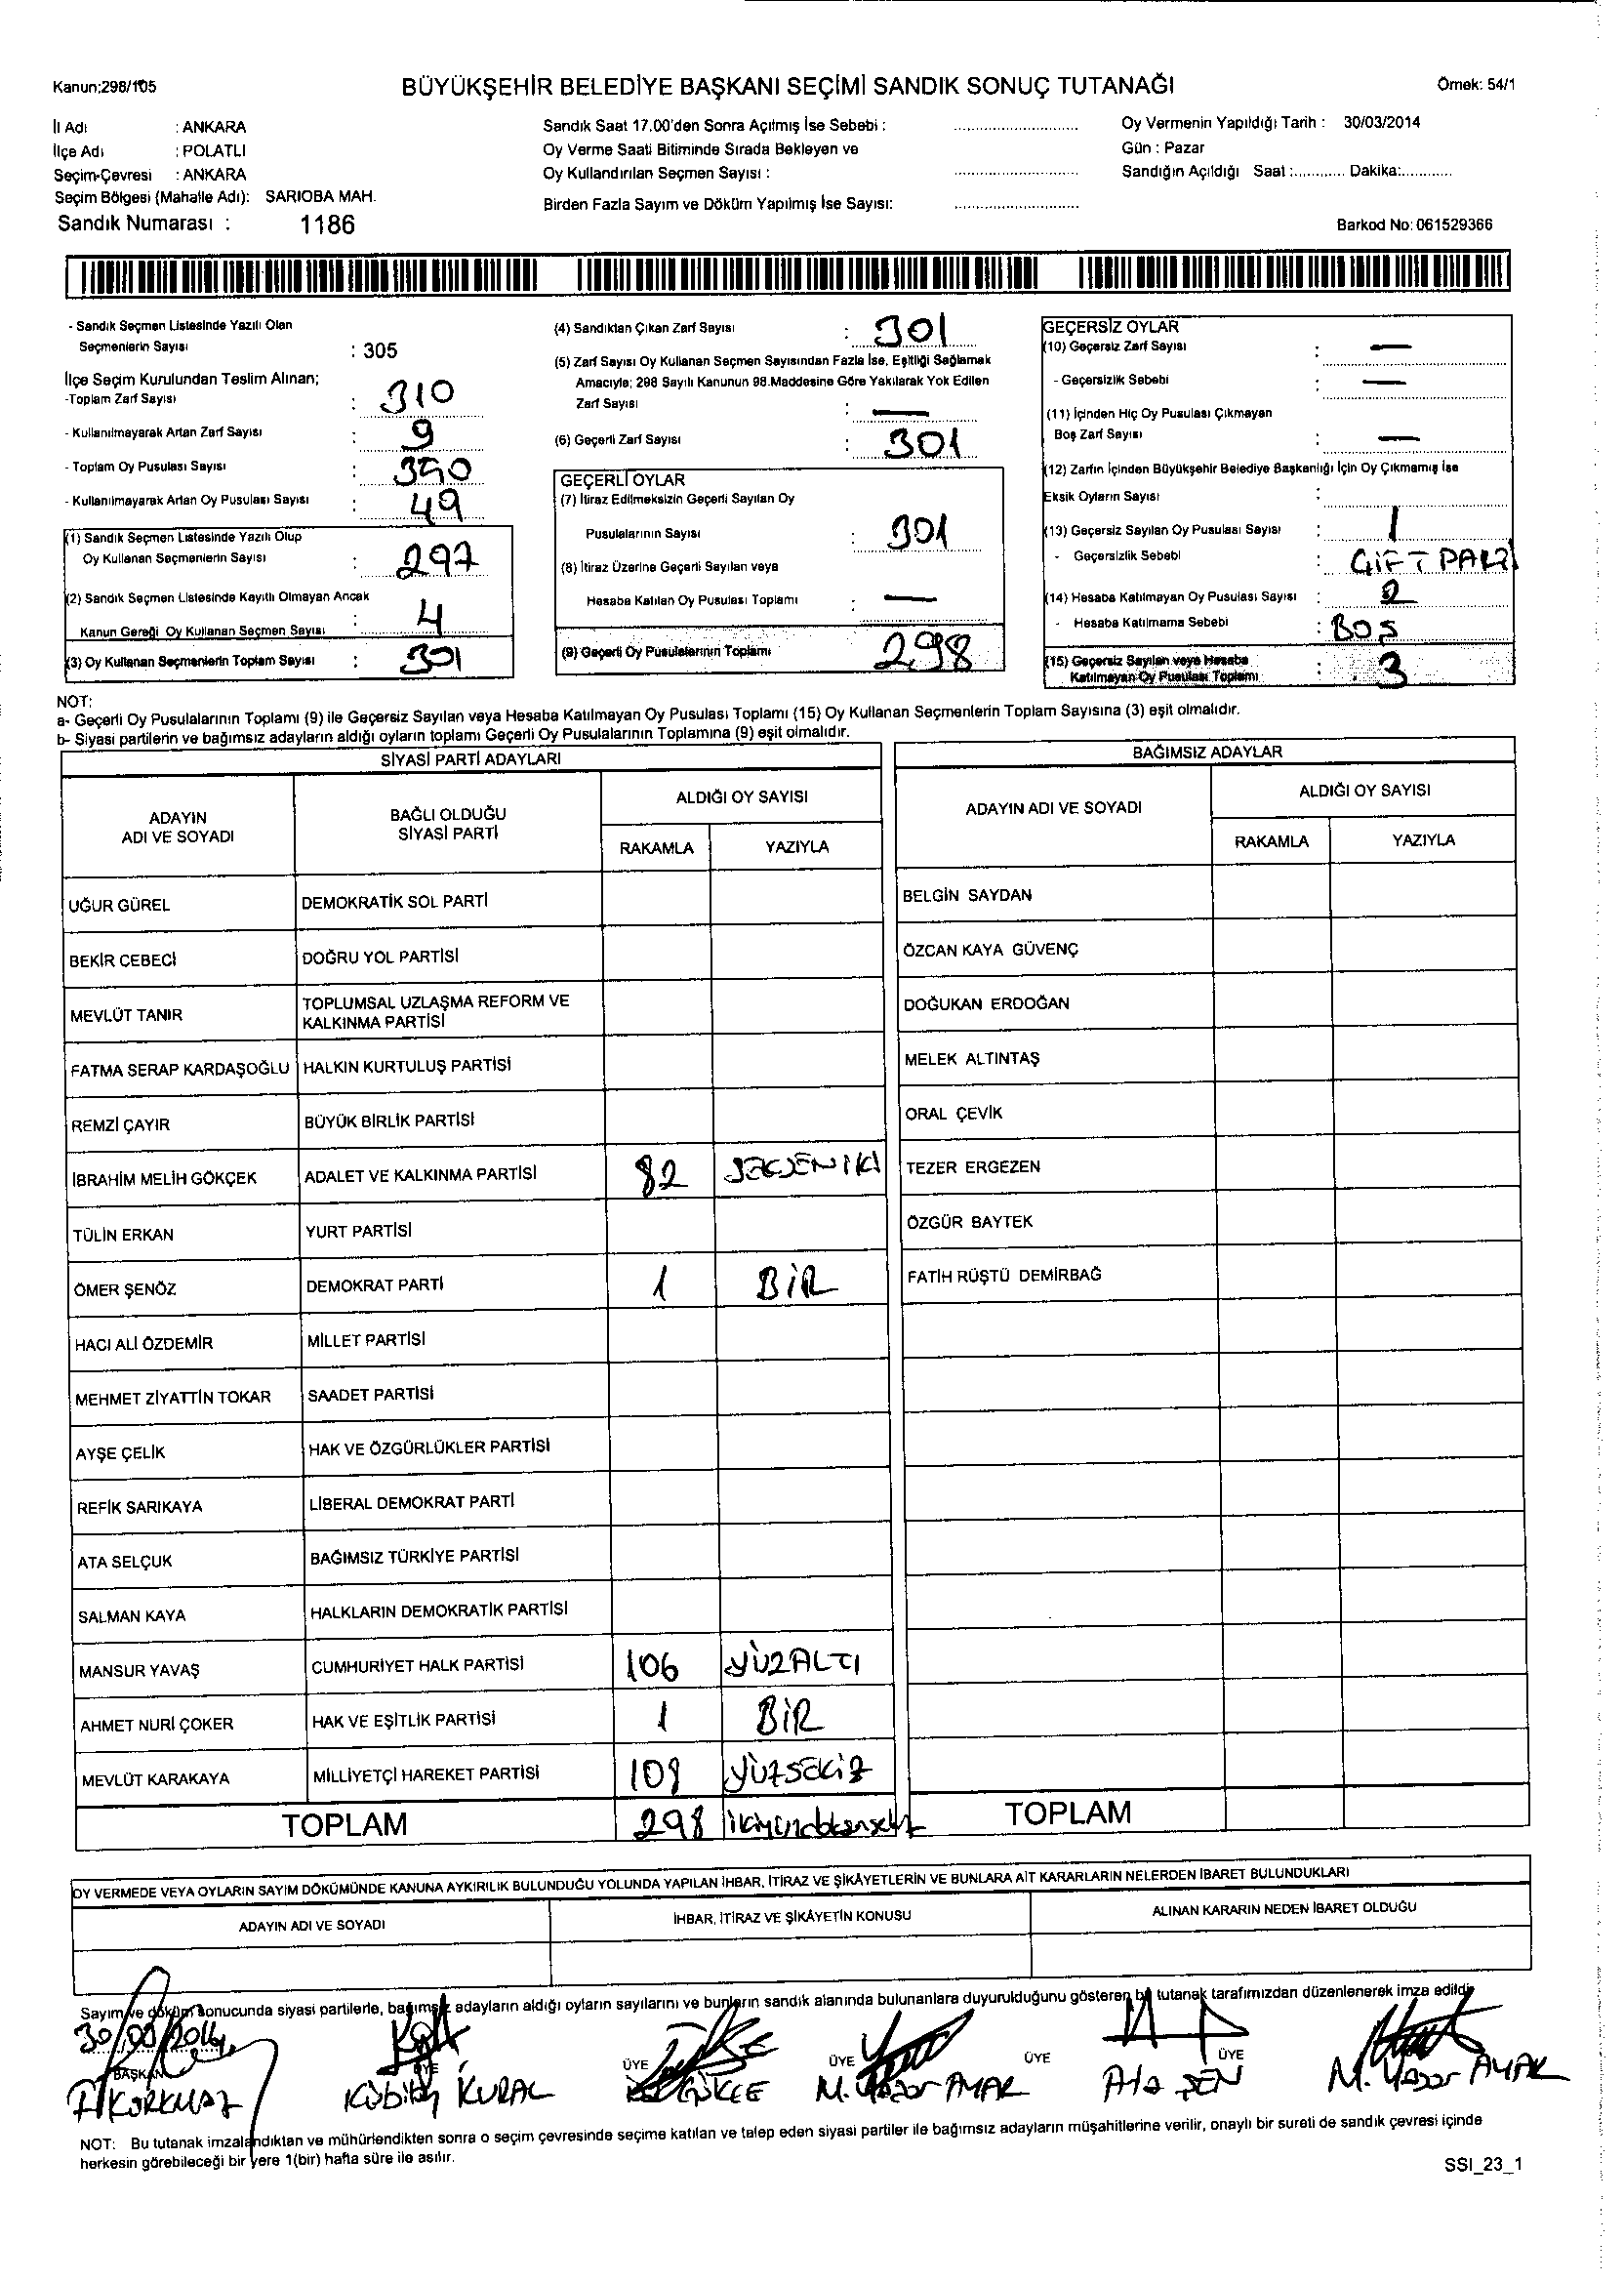 Kanun;298/105
BÜYÜKŞEHİR BELEDİYE BAŞKANI SEÇİMİ SANDIK SONUÇ TUTANAĞI
Örnek: 54/1
İl Adı : ANKARA
İlçe Adı : POLATLI
Seçim-Çevresi : ANKARA
Seçim Bölgesi (Mahalle Adı): SARIOBA MAH.
Sandık Numarası : 1186
Sandık Saat 17.00'den Sonra Açılmış İse Sebebi :
Oy Verme Saati Bitiminde Sırada Bekleyen ve
Oy Kullandırılan Seçmen Sayısı :
Birden Fazla Sayım ve Döküm Yapılmış İse Sayısı:
Oy Vermenin Yapıldığı Tarih : 30/03/2014
Gün : Pazar
Sandığın Açıldığı Saat :............ Dakika:............
Barkod No: 061529366
- Sandık Seçmen Listesinde Yazılı Olan
Seçmenlerin Sayısı : 305
İlçe Seçim Kurulundan Teslim Alınan;
-Toplam Zarf Sayısı : 310
- Kullanılmayarak Artan Zarf Sayısı : 9
- Toplam Oy Pusulası Sayısı : 350
- Kullanılmayarak Artan Oy Pusulası Sayısı : 49
(1) Sandık Seçmen Listesinde Yazılı Olup
Oy Kullanan Seçmenlerin Sayısı : 297
(2) Sandık Seçmen Listesinde Kayıtlı Olmayan Ancak
Kanun Gereği Oy Kullanan Seçmen Sayısı : 4
(3) Oy Kullanan Seçmenlerin Toplam Sayısı : 301
(4) Sandıktan Çıkan Zarf Sayısı : 301
(5) Zarf Sayısı Oy Kullanan Seçmen Sayısından Fazla İse, Eşitliği Sağlamak
Amacıyla; 298 Sayılı Kanunun 98.Maddesine Göre Yakılarak Yok Edilen
Zarf Sayısı : —
(6) Geçerli Zarf Sayısı : 301
GEÇERLİ OYLAR
(7) İtiraz Edilmeksizin Geçerli Sayılan Oy
Pusulalarının Sayısı : 301
(8) İtiraz Üzerine Geçerli Sayılan veya
Hesaba Katılan Oy Pusulası Toplamı : —
(9) Geçerli Oy Pusulalarının Toplamı 298
GEÇERSİZ OYLAR
(10) Geçersiz Zarf Sayısı : —
- Geçersizlik Sebebi : —
(11) İçinden Hiç Oy Pusulası Çıkmayan
Boş Zarf Sayısı : —
(12) Zarfın İçinden Büyükşehir Belediye Başkanlığı İçin Oy Çıkmamış İse
Eksik Oyların Sayısı :
(13) Geçersiz Sayılan Oy Pusulası Sayısı : 1
- Geçersizlik Sebebi :
(14) Hesaba Katılmayan Oy Pusulası Sayısı : 2
- Hesaba Katılmama Sebebi : BOŞ
(15) Geçersiz Sayılan veya Hesaba
Katılmayan Oy Pusulası Toplamı : 3
NOT:
a- Geçerli Oy Pusulalarının Toplamı (9) ile Geçersiz Sayılan veya Hesaba Katılmayan Oy Pusulası Toplamı (15) Oy Kullanan Seçmenlerin Toplam Sayısına (3) eşit olmalıdır.
b- Siyasi partilerin ve bağımsız adayların aldığı oyların toplamı Geçerli Oy Pusulalarının Toplamına (9) eşit olmalıdır.
SİYASİ PARTİ ADAYLARI
ADAYIN ADI VE SOYADI
BAĞLI OLDUĞU SİYASİ PARTİ
ALDIĞI OY SAYISI
RAKAMLA YAZIYLA
UĞUR GÜREL DEMOKRATİK SOL PARTİ
BEKİR CEBECİ DOĞRU YOL PARTİSİ
MEVLÜT TANIR TOPLUMSAL UZLAŞMA REFORM VE KALKINMA PARTİSİ
FATMA SERAP KARDAŞOĞLU HALKIN KURTULUŞ PARTİSİ
REMZİ ÇAYIR BÜYÜK BİRLİK PARTİSİ
İBRAHİM MELİH GÖKÇEK ADALET VE KALKINMA PARTİSİ 82 SEKSENİKİ
TÜLİN ERKAN YURT PARTİSİ
ÖMER ŞENÖZ DEMOKRAT PARTİ 1 BİR
HACI ALİ ÖZDEMİR MİLLET PARTİSİ
MEHMET ZİYATTİN TOKAR SAADET PARTİSİ
AYŞE ÇELİK HAK VE ÖZGÜRLÜKLER PARTİSİ
REFİK SARIKAYA LİBERAL DEMOKRAT PARTİ
ATA SELÇUK BAĞIMSIZ TÜRKİYE PARTİSİ
SALMAN KAYA HALKLARIN DEMOKRATİK PARTİSİ
MANSUR YAVAŞ CUMHURİYET HALK PARTİSİ 106 YÜZALTI
AHMET NURİ ÇOKER HAK VE EŞİTLİK PARTİSİ 1 BİR
MEVLÜT KARAKAYA MİLLİYETÇİ HAREKET PARTİSİ 108 YÜZSEKİZ
TOPLAM 298
BAĞIMSIZ ADAYLAR
ADAYIN ADI VE SOYADI
ALDIĞI OY SAYISI
RAKAMLA YAZIYLA
BELGİN SAYDAN
ÖZCAN KAYA GÜVENÇ
DOĞUKAN ERDOĞAN
MELEK ALTINTAŞ
ORAL ÇEVİK
TEZER ERGEZEN
ÖZGÜR BAYTEK
FATİH RÜŞTÜ DEMİRBAĞ
TOPLAM
OY VERMEDE VEYA OYLARIN SAYIM DÖKÜMÜNDE KANUNA AYKIRILIK BULUNDUĞU YOLUNDA YAPILAN İHBAR, İTİRAZ VE ŞİKÂYETLERİN VE BUNLARA AİT KARARLARIN NELERDEN İBARET BULUNDUKLARI
ADAYIN ADI VE SOYADI
İHBAR, İTİRAZ VE ŞİKÂYETİN KONUSU
ALINAN KARARIN NEDEN İBARET OLDUĞU
Sayım ve döküm sonucunda siyasi partilerle, bağımsız adayların aldığı oyların sayılarını ve bunların sandık alanında bulunanlara duyurulduğunu gösteren bu tutanak tarafımızdan düzenlenerek imza edildi.
BAŞKAN ÜYE ÜYE ÜYE ÜYE ÜYE
KORKMAZ Kübilay KURAL GÖKCE M. Yaşar AYAR Ata ŞEN M. Yaşar AYAR
NOT: Bu tutanak imzalandıktan ve mühürlendikten sonra o seçim çevresinde seçime katılan ve talep eden siyasi partiler ile bağımsız adayların müşahitlerine verilir, onaylı bir sureti de sandık çevresi içinde
herkesin görebileceği bir yere 1(bir) hafta süre ile asılır.
SSI_23_1